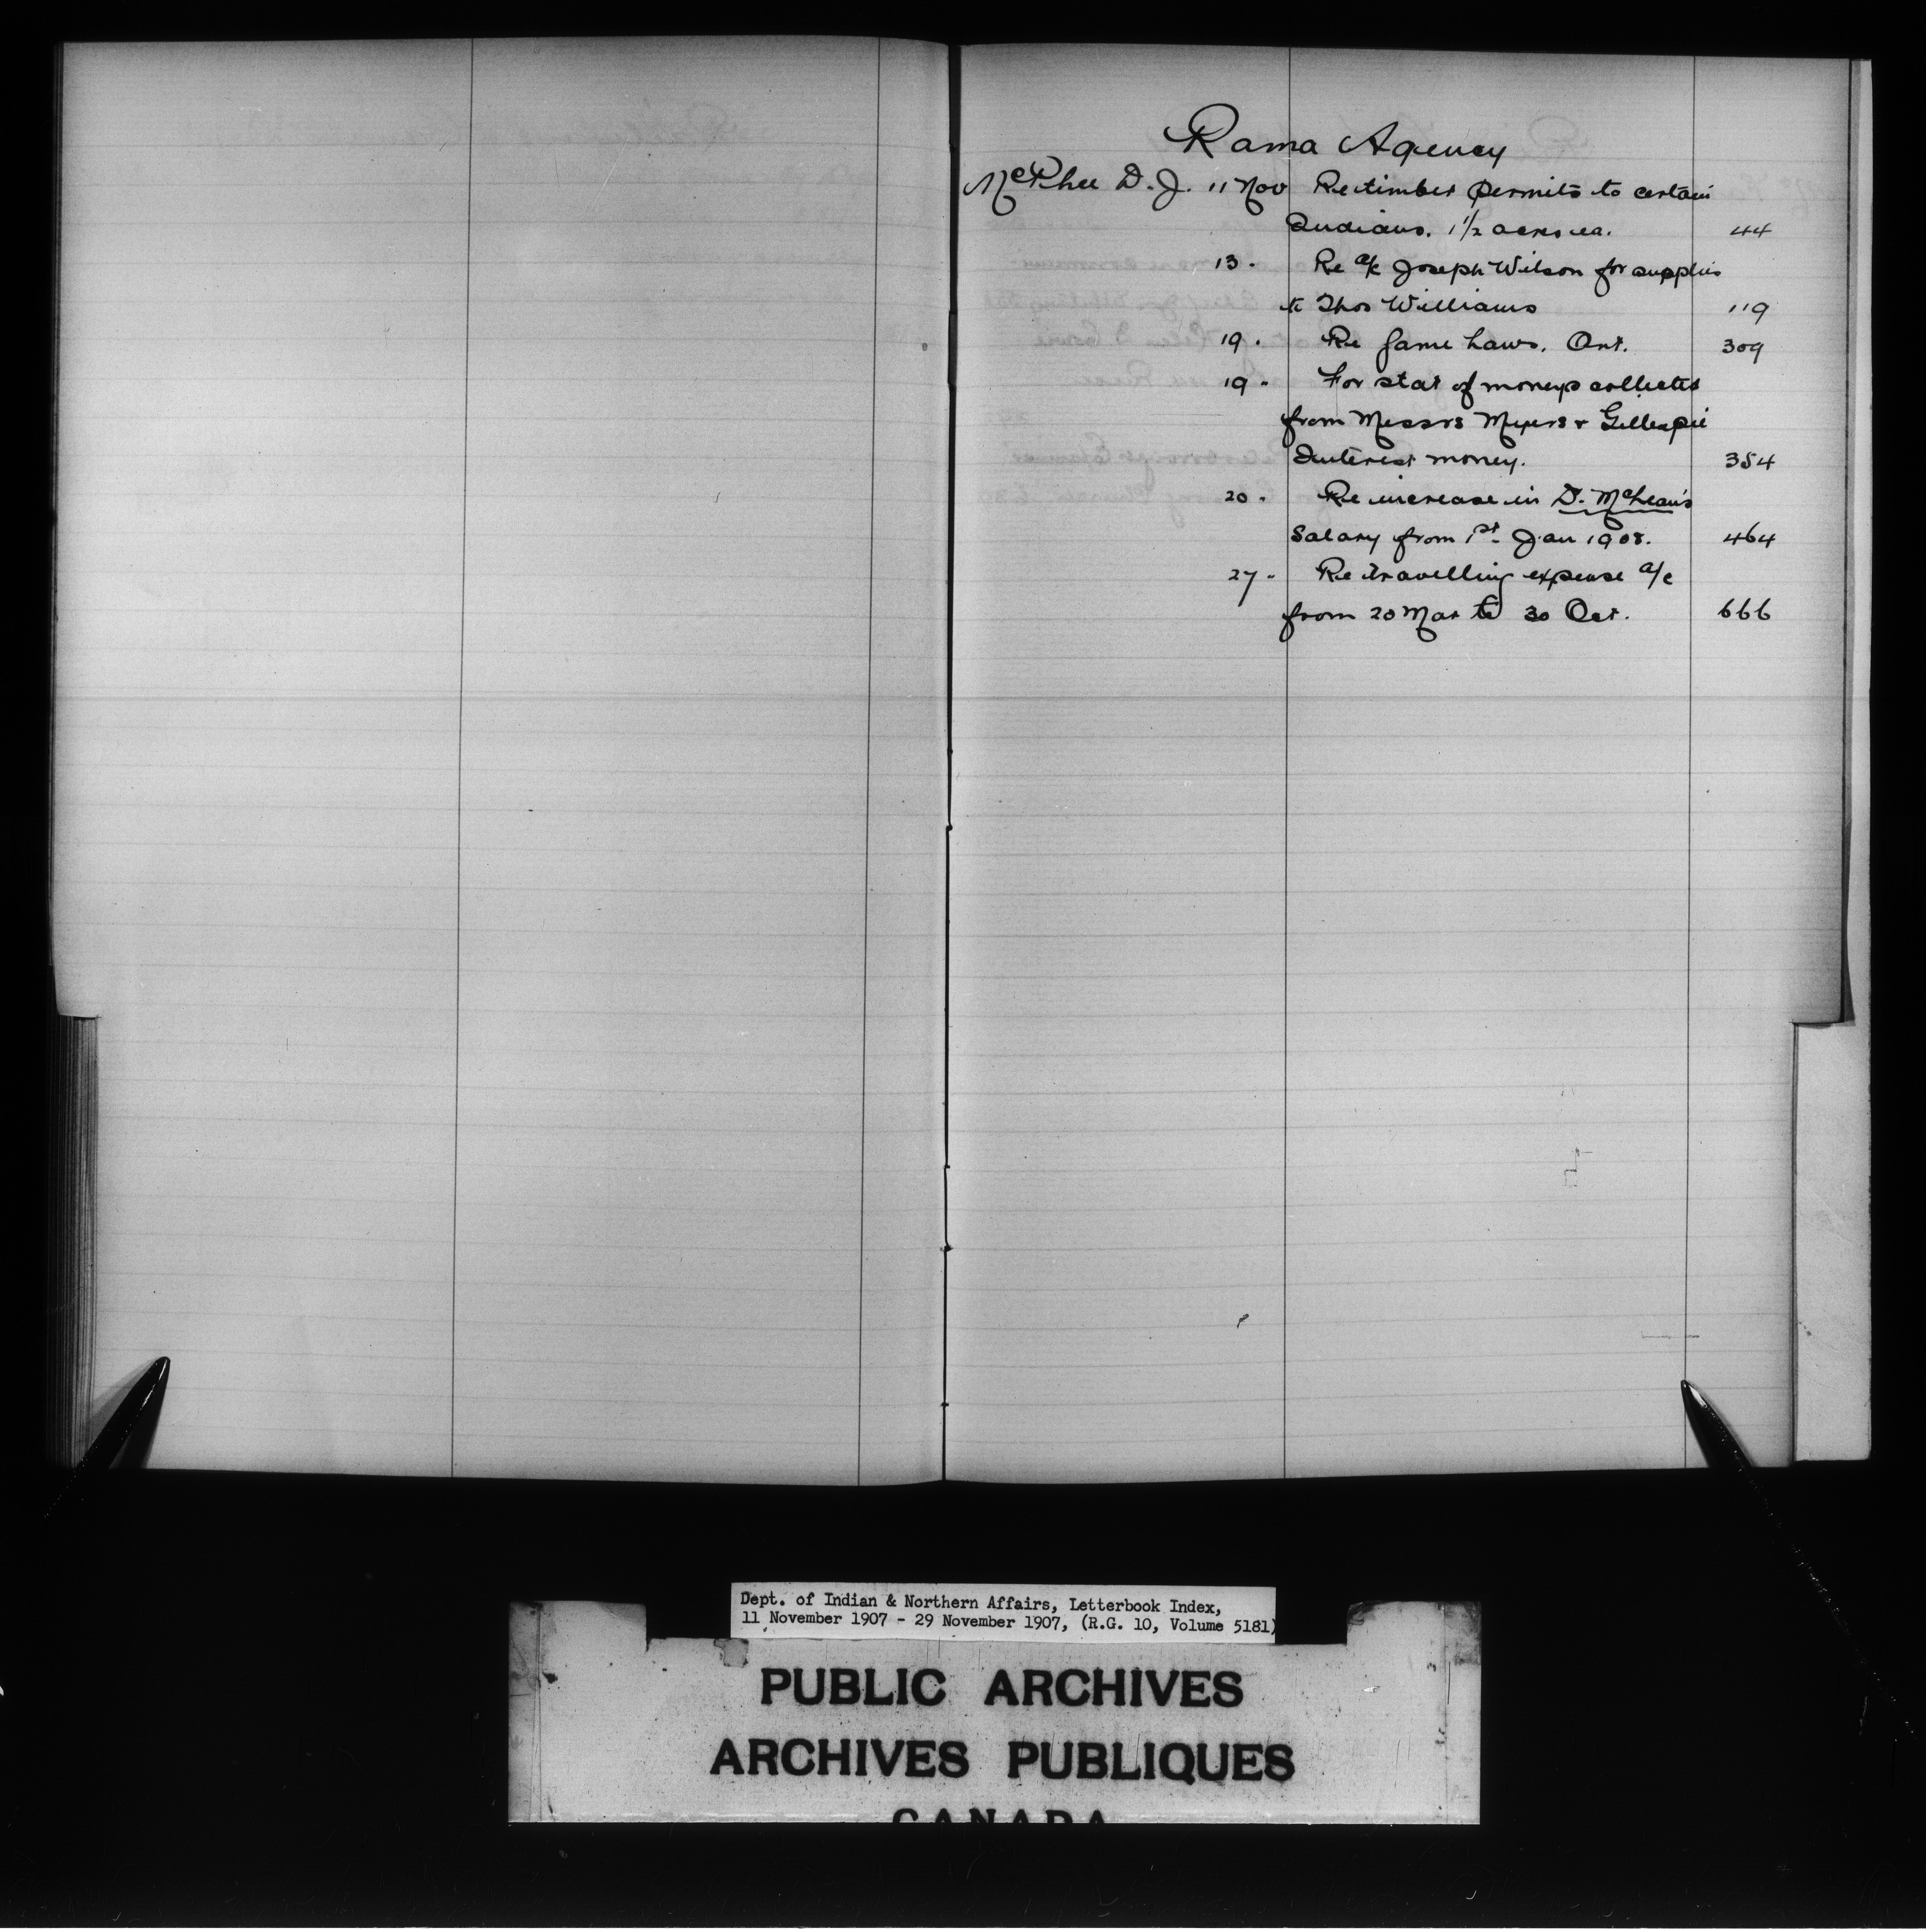 Rama Agency
McPhee D. J. 11 Nov Re timber permits to certain
Indians. 1 1/2 acres ea. 44
13 . Re a/c Joseph Wilson for supplies
to Thos Williams 119
19 . Re Game Laws. Ont. 309
19 . For stat of moneys collected
from Messrs Myers & Gillespie
Interest money. 354
20 . Re increase in D. McLean's
Salary from 1st Jan 1908. 464
27 . Re travelling expense a/c
from 20 Mar to 30 Oct. 666
Dept. of Indian & Northern Affairs, Letterbook Index,
11 November 1907 - 29 November 1907, (R.G. 10, Volume 5181)
PUBLIC ARCHIVES
ARCHIVES PUBLIQUES
CANADA